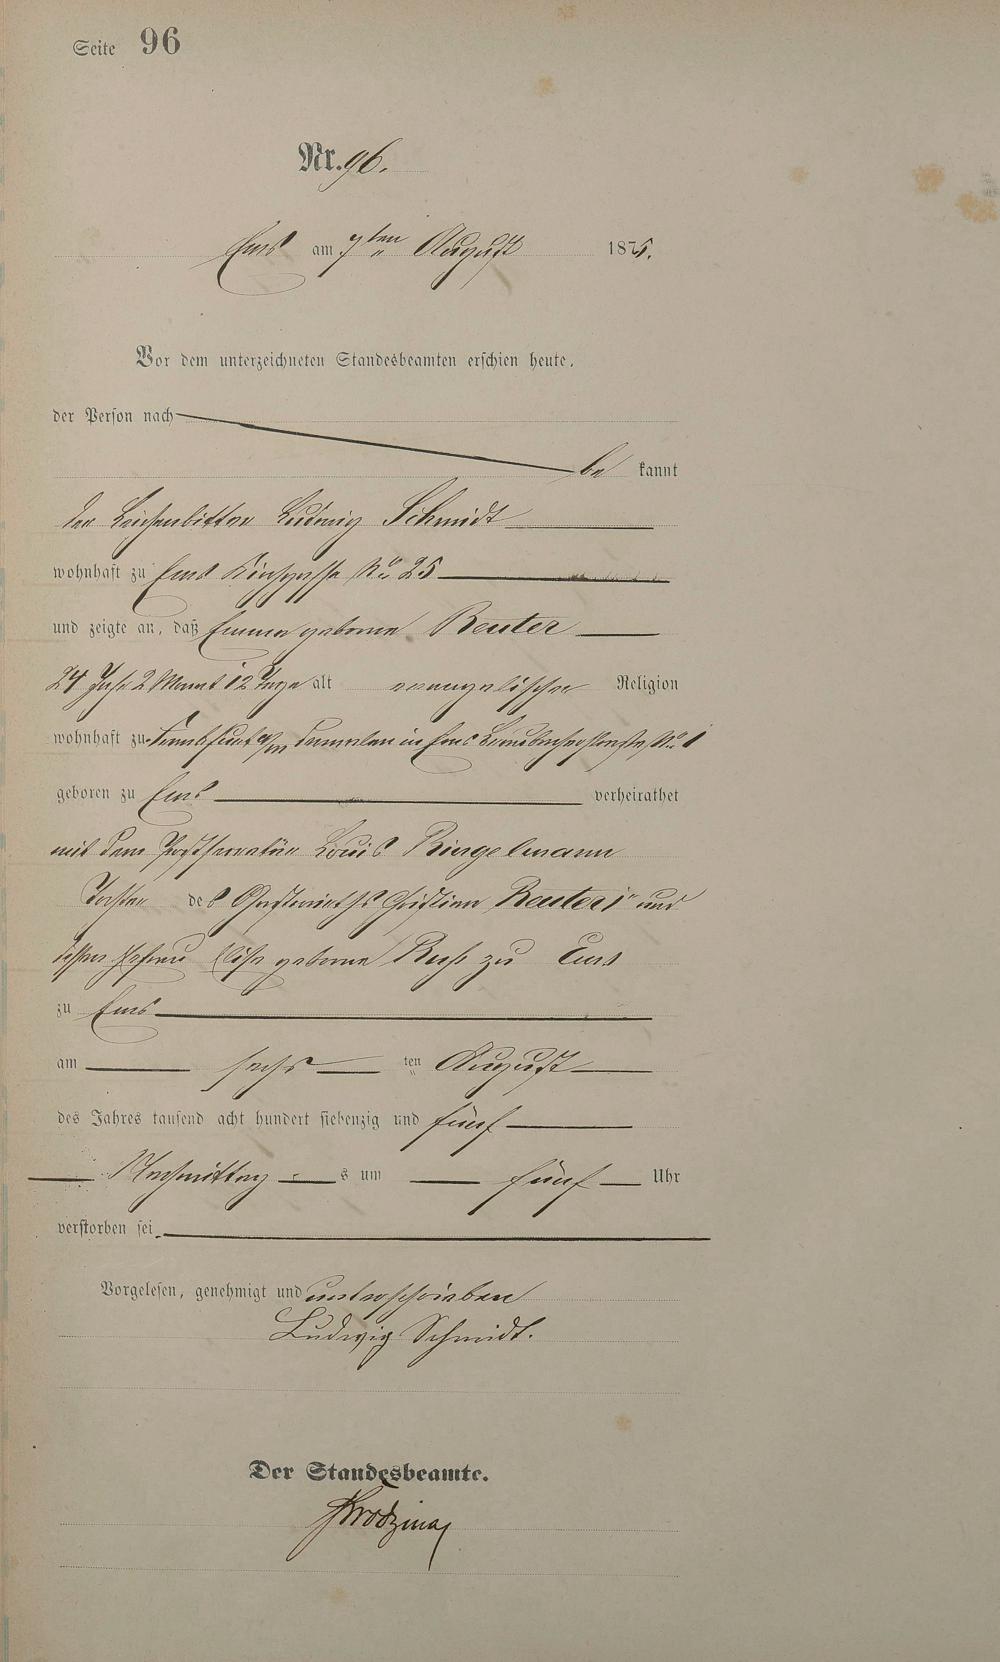 Seite 96
Nr. 96.
Ems am 7ten August 1875.
Vor dem unterzeichneten Standesbeamten erschien heute,
der Person nach
be kannt
der Leichenbitter Ludwig Schmidt
wohnhaft zu Ems Kirchgasse No 25
und zeigte an, daß Emma geborne Reuter
24 Jahr 2 Monat 12 Tage alt evangelischer Religion
wohnhaft zu Frankfurt a/m in Ems No 1
geboren zu Ems verheirathet
mit dem Postsecretär Louis Ringelmann
Tochter des Gastwirths Christian Reuter und
dessen Ehefrau Elise geborne zu Ems
zu Ems
am sechsten August
des Jahres tausend acht hundert siebenzig und fünf
Nachmittags um fünf Uhr
verstorben sei.
Vorgelesen, genehmigt und unterschrieben
Ludwig Schmidt.
Der Standesbeamte.